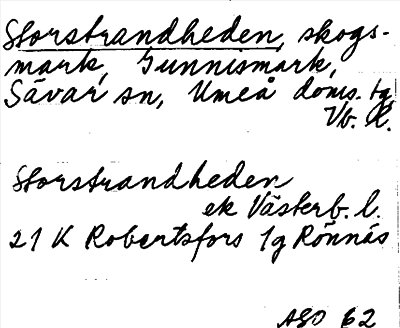 Storstrandheden, skogs-
mark, Gunnismark,
Sävar sn, Umeå doms. tg
Vb. l.
Storstrandheden
ek Västerb. l.
21 K Robertsfors 1g Rönnäs
ASO 62